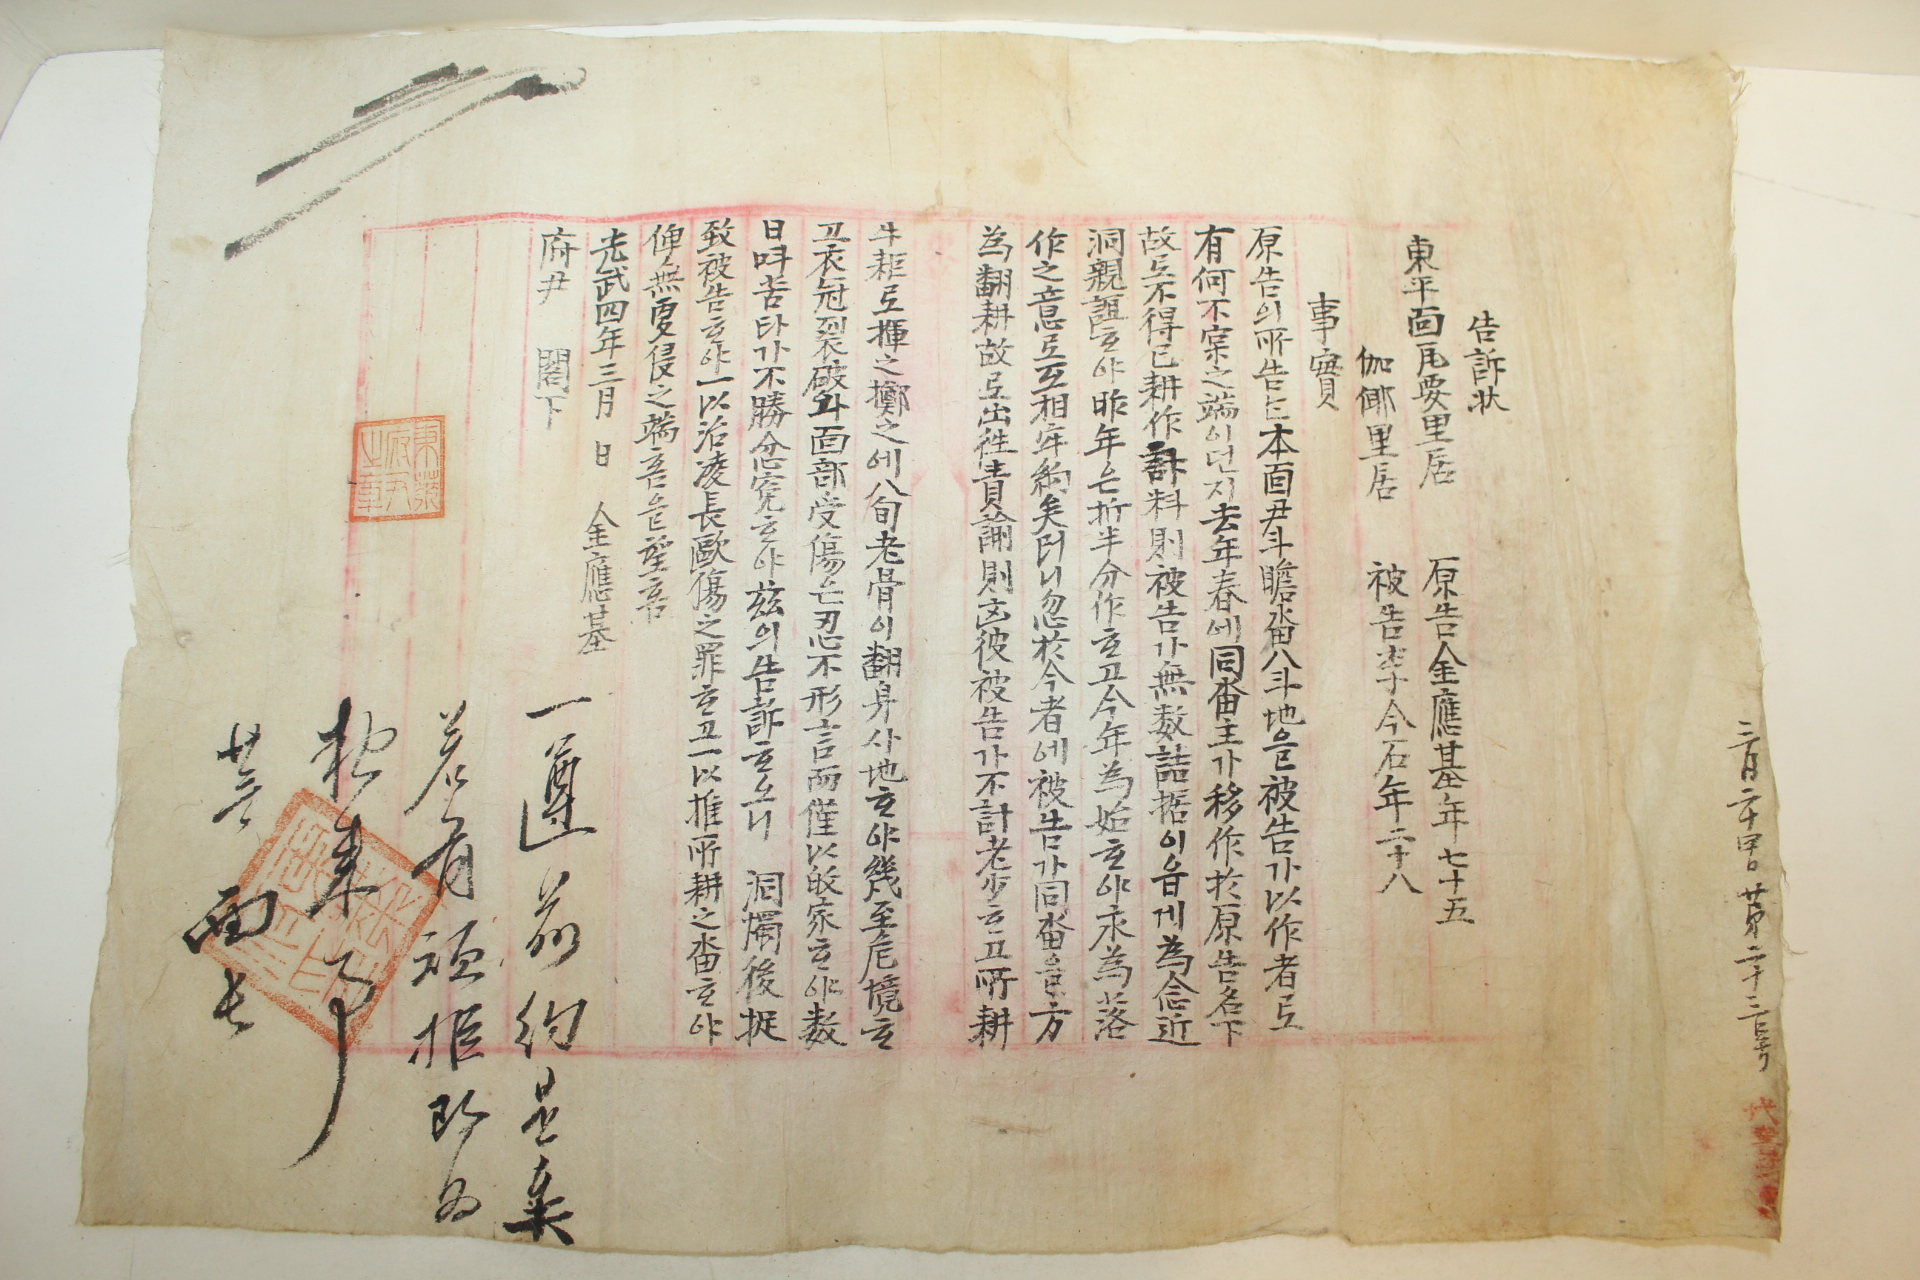 告訴状
東平面瓦要里居 原告金應基年七十五
伽倻里居 被告李今石年二十八
事實
原告의所告는本面尹斗瞻畓八斗地을被告가以作者로
有何不窠之端이던지去年春에同畓主가移作於原告名下
故로不得已耕作計料則被告가無数詰拒이음게為念近
洞親誼ᄒᆞ야昨年은折半分作ᄒᆞ고今年為始ᄒᆞ야永為落
作之意로互相牢約矣러니忽於今者에被告가同畓을方
為翻耕故로出徃責諭則囟彼被告가不計老少ᄒᆞ고所耕
牛耟로揮之擲之에八旬老骨이翻身仆地ᄒᆞ야幾至危境ᄒᆞ
고衣冠裂破와面部受傷은忍不形言而僅以皈家ᄒᆞ야数
日呌苦타가不勝忿寃ᄒᆞ야玆의告訴ᄒᆞ오니 洞燭後捉
致被告ᄒᆞ야一以治凌長歐傷之罪ᄒᆞ고一以推所耕之畓ᄒᆞ야
俾無更侵之端ᄒᆞ믈望ᄒᆞᆷ
光武四年三月 日 金應基
府尹 閣下
東萊府尹之章
一遵前約是矣
若有頑拒即為
捉來事
廿三
面長